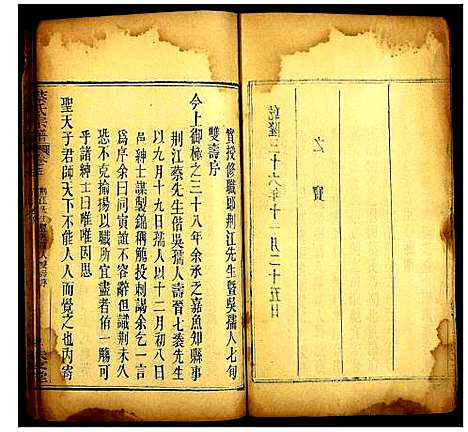 之寶
乾隆三十六年十一月二十五日
實授修職郎荆江先生暨吳孺人七旬
雙壽序
今上御極之三十八年余承乏嘉魚知縣事
荆江蔡先生偕吳孺人壽晉七袠先生
以九月十九日孺人以十二月初八日
邑紳士謀製錦稱觴投刺謁余乞一言
為序余曰同寅誼不容辭但識荆未久
恐不克揄揚以職所宜盡者侑一觴可
乎諸紳士曰唯唯因思
聖天子君師天下不能人人而覺之也內寄
蔡氏宗譜